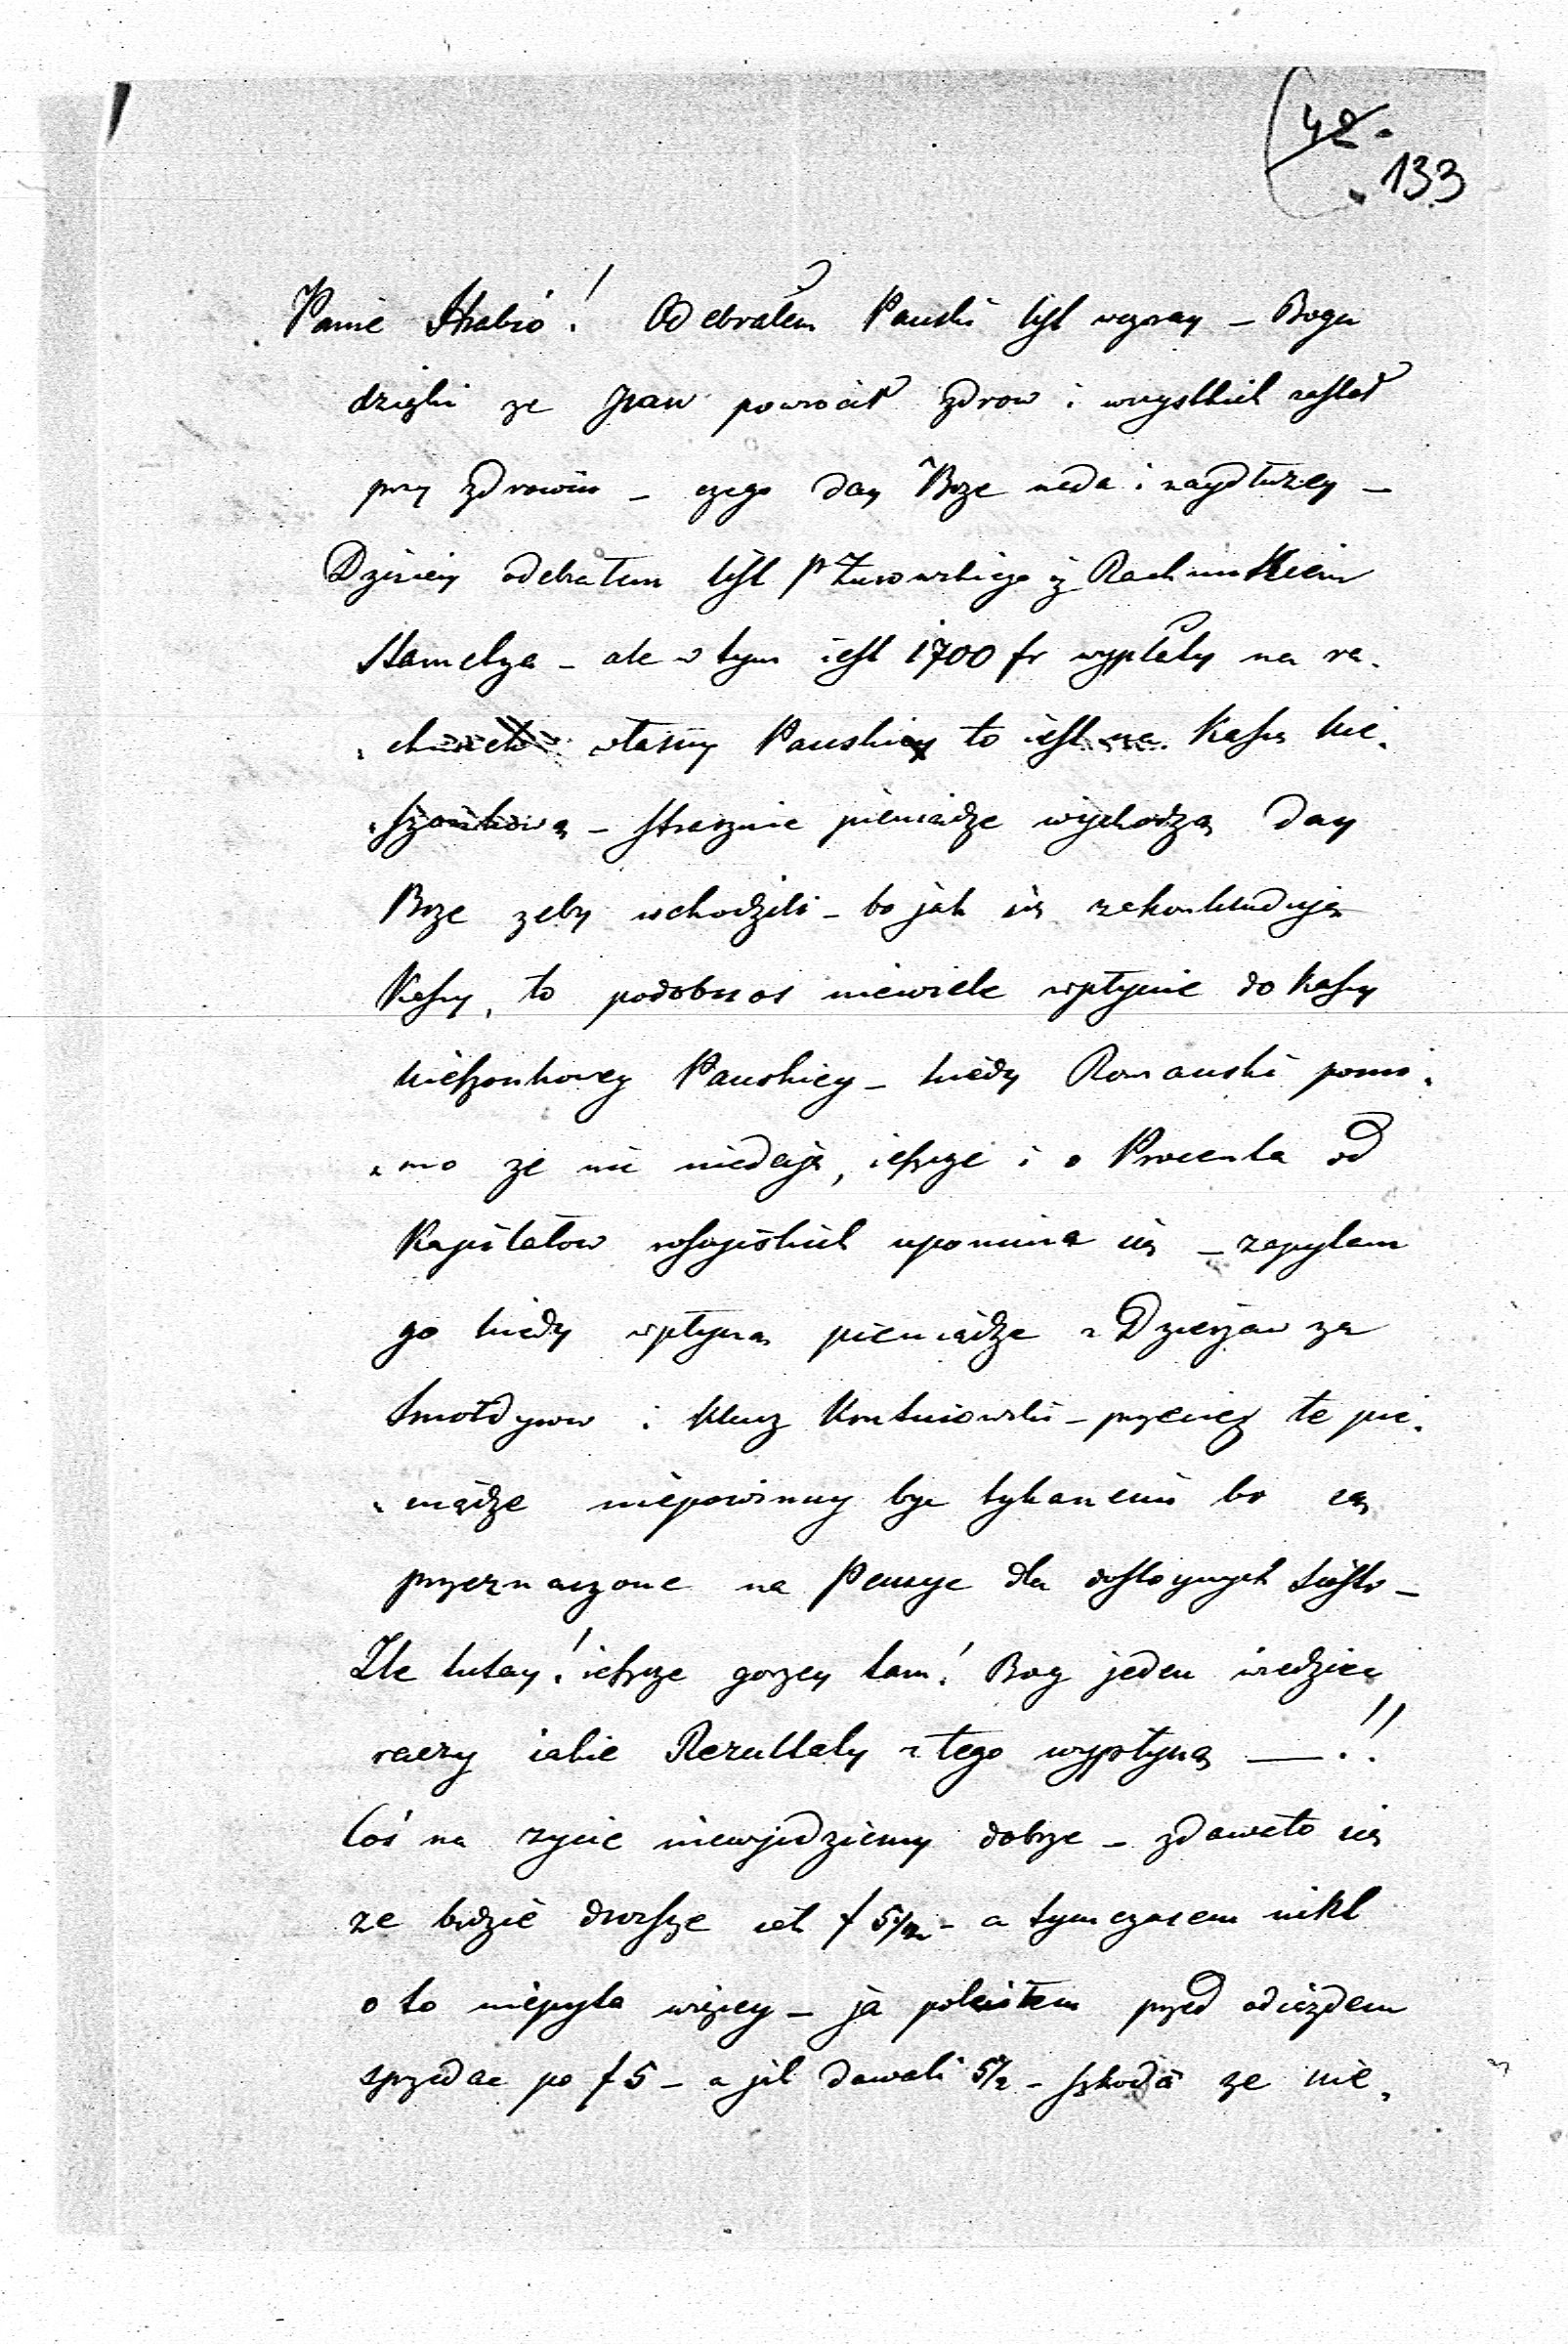 42.
133
Panie Hrabio! Odebrałem Pański list wczoray – Bogu
dzięki ze Pan powrócił zdrow i wszystkich zastał
przy zdrowiu – czego day Boze nada i naydłuzey –
Dzisiey odebrałem list P Żurowskiego z Rachunkiem
Hamelza – ale w tym iest 1700 fr wypłaty na ra-
własny Panski to iest na Kassę kie-
szonkową – strasznie pieniądze wychodzą day
Boze zeby wchodzili – bo jak się zakonkluduią
Kassy, to podobnos niewiele wpłynie do kassy
kieszonkowey Panskiey – kiedy Romanski pomi-
mo ze nic niedaje, ieszcze i o Procenta od
Kapitałow rossyiskich upomina się – zapytam
go kiedy wpłyną pieniądze z Dzierzaw za
Smołdyrow i Klucz – przeciez te pie-
niądze niepowinny byc tykanemi bo są
przeznaczone na Pensye dla dostoynych
Zle tutay! ieszcze gorzey tam! Bog jeden wiedziec
raczy iakie Rezultaty z tego wypłyną — !!
Coś na zycie niewyidziemy dobrze – zdawało się
ze będzie drozsze iak f 5½ – a tymczasem nikt
o to niepyta więcey – ja poleciłem przed odiazdem
sprzedac po f 5 – a juz dawali 5½ – szkoda ze nie-